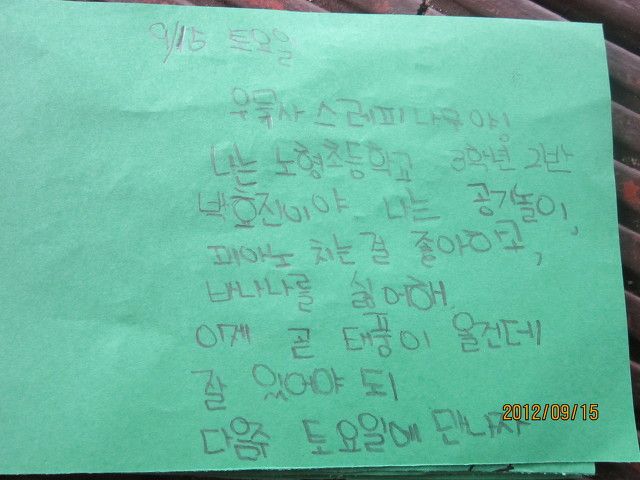 9/15 토요일
우묵사스레피나무야!
나는 노형초등학교 3학년 2반
박효진이야 나는 공기놀이,
피아노 치는걸 좋아하고,
바나나를 싫어해
이제 곧 태풍이 올건데
잘 있어야 되
다음주 토요일에 만나자
2012/09/15